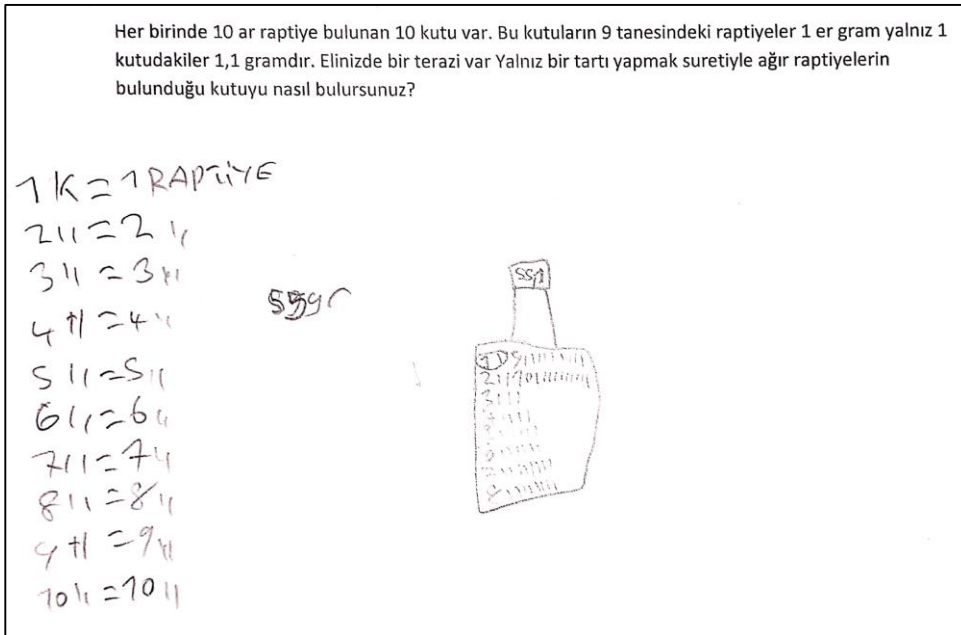 Her birinde 10 ar raptiye bulunan 10 kutu var. Bu kutuların 9 tanesindeki raptiyeler 1 er gram yalnız 1
kutudakiler 1,1 gramdır. Elinizde bir terazi var Yalnız bir tartı yapmak suretiyle ağır raptiyelerin
bulunduğu kutuyu nasıl bulursunuz?
1 K = 1 RAPTİYE
2 " = 2 "
3 " = 3 "
4 " = 4 "
5 " = 5 "
6 " = 6 "
7 " = 7 "
8 " = 8 "
9 " = 9 "
10 " = 10 "
55,1